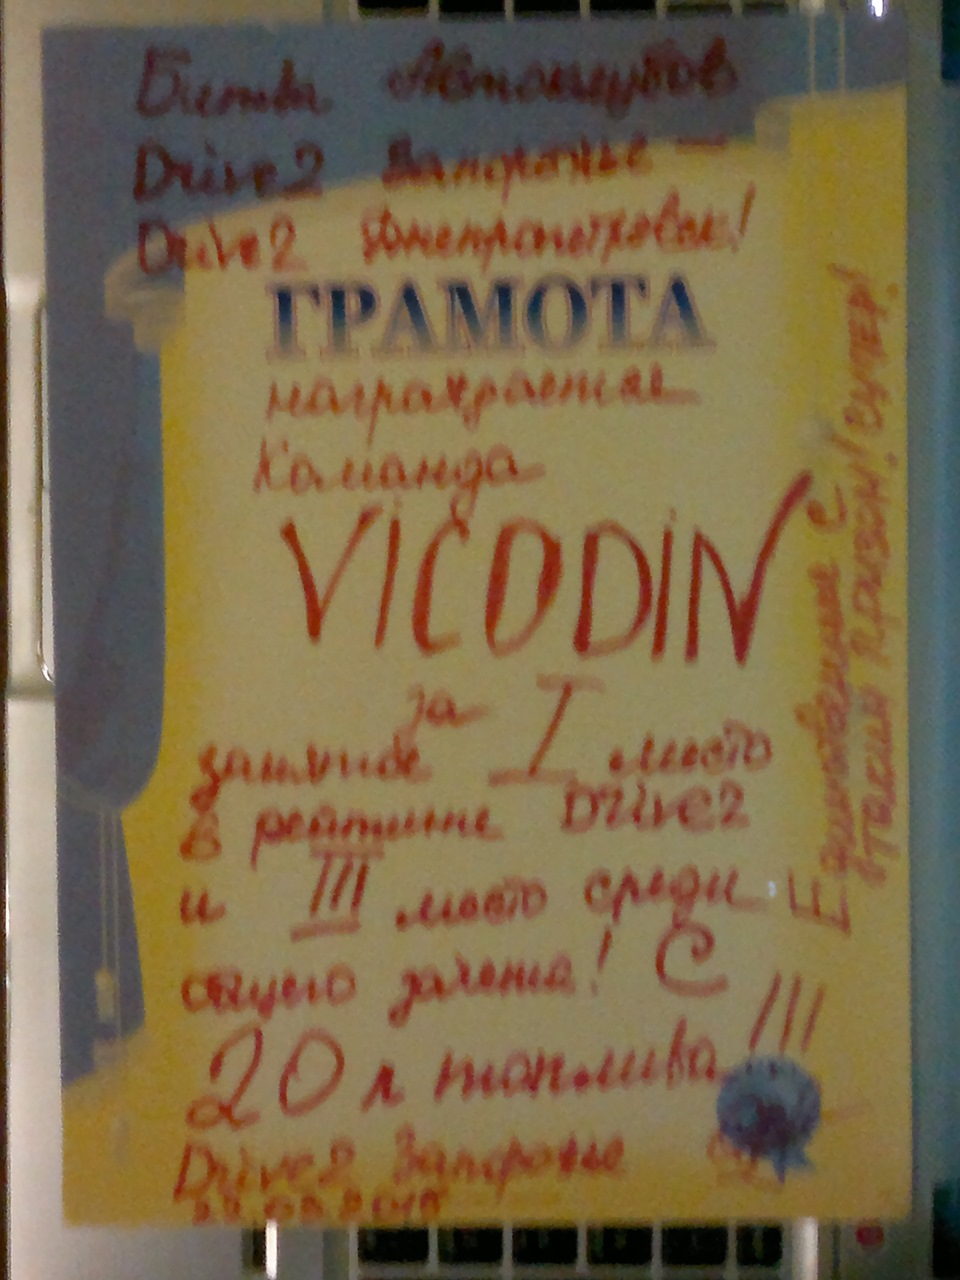 Битва Автоклубов
Drive2 Запорожье —
Drive2 Днепропетровск!
ГРАМОТА
награждается
Команда
VICODIN
за
занятое I место
в рейтинге Drive2
и III место среди
общего зачета! С
20 л топлива!!!
Drive2 Запорожье
Единственные с
таким призом! Супер!